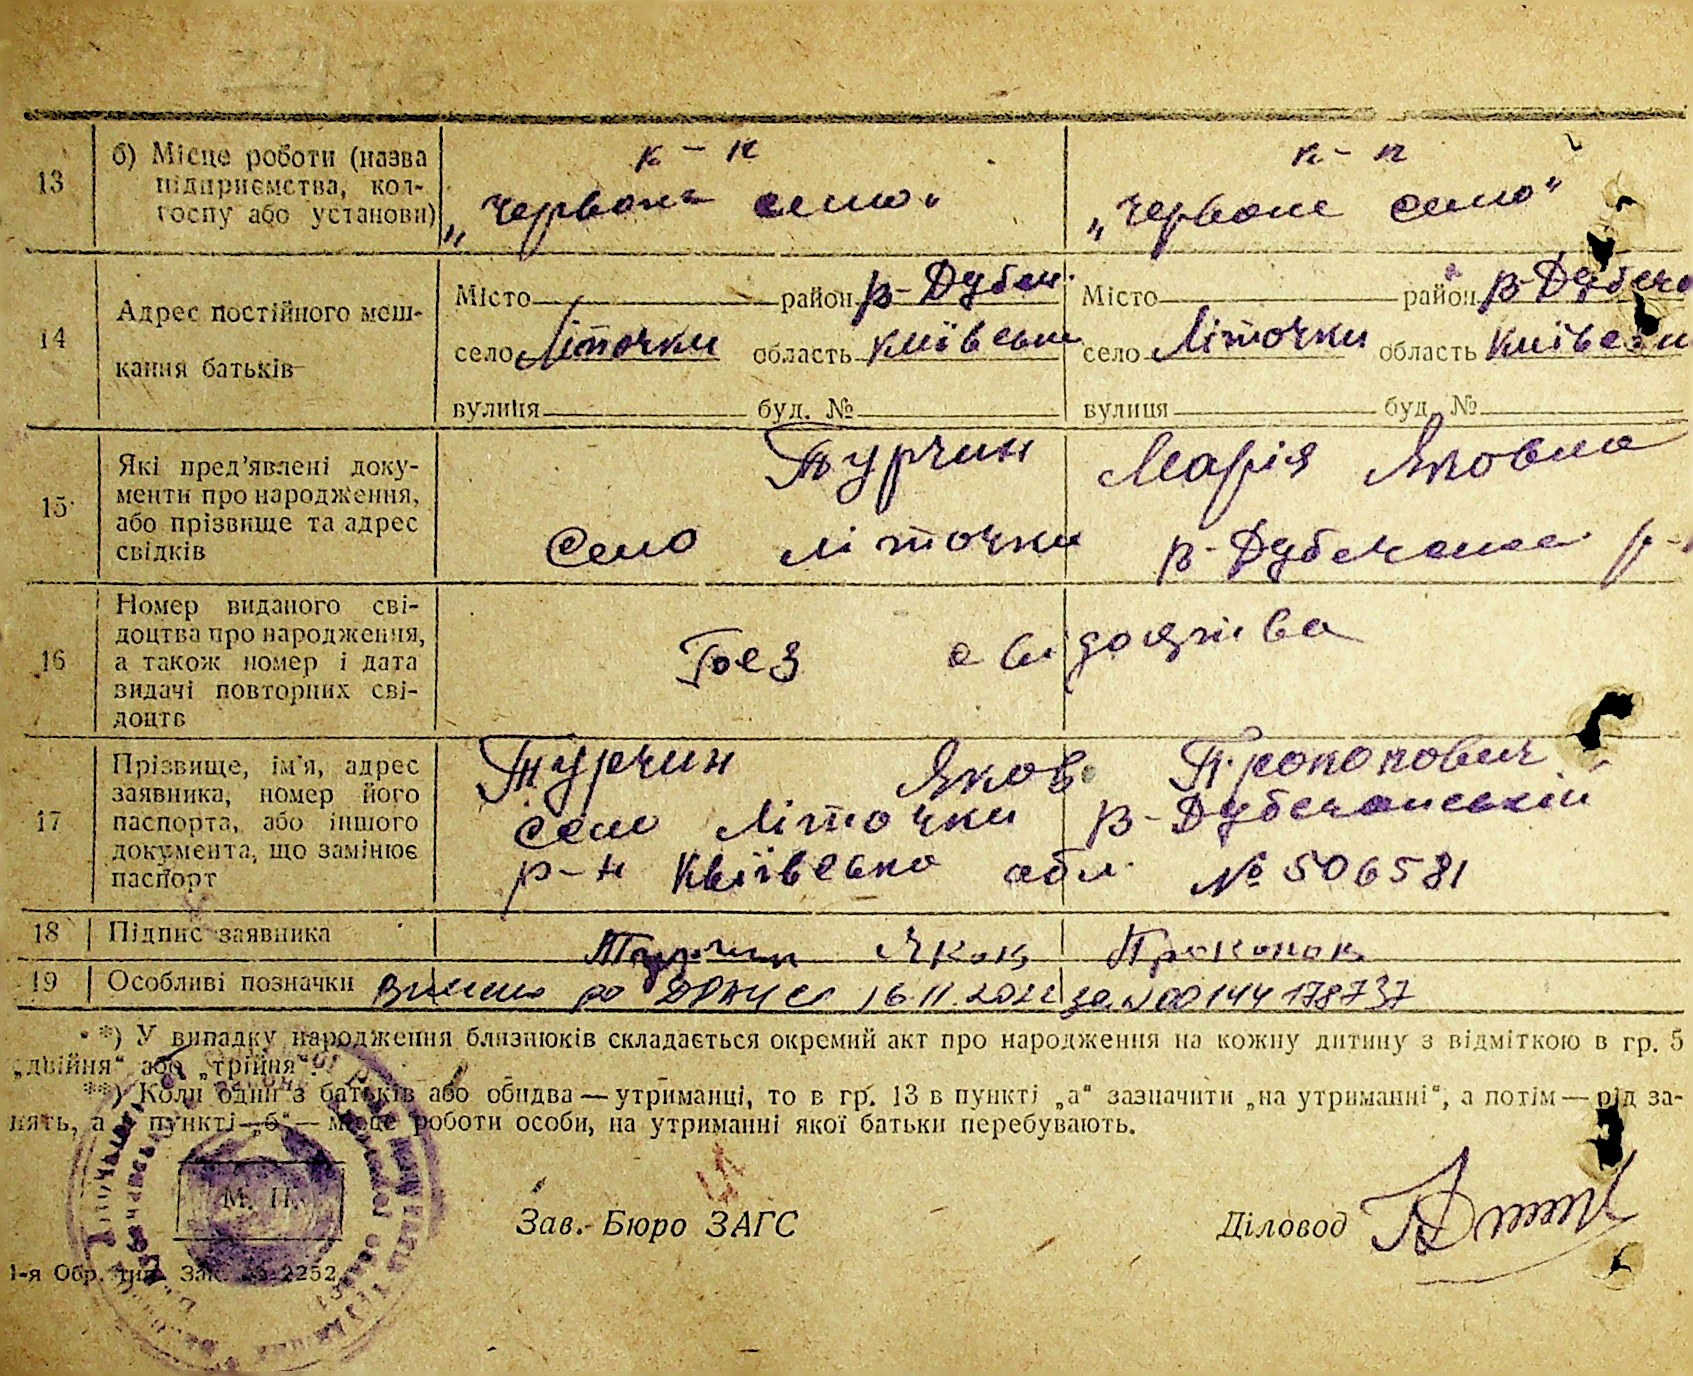 13
б) Місце роботи (назва підприємства, колгоспу або установи)
к-п
„Червоне село“
к-п
„Червоне село“
14
Адрес постійного мешкання батьків
Місто район В-Дубеч.
село Літочки область Київськ
вулиця буд. №
Місто район В-Дубеч
село Літочки область Київськ
вулиця буд. №
15
Які пред’явлені документи про народження, або прізвище та адрес свідків
Турчин Марія Яковна
село Літочки В-Дубечанск р-
16
Номер виданого свідоцтва про народження, а також номер і дата видачі повторних свідоцтв
Без свідоцтва
17
Прізвище, ім’я, адрес заявника, номер його паспорта, або іншого документа, що замінює паспорт
Турчин Яков Прокопович
село Літочки В-Дубечанський
р-н Київсько обл. № 506581
18
Підпис заявника
Турчин Яков Прокопов
19
Особливі позначки
Внесено до ДРАЦС 16.11.2022 за № 00144178737
*) У випадку народження близнюків складається окремий акт про народження на кожну дитину з відміткою в гр. 5
„двійня“ або „трійня“.
**) Коли один з батьків або обидва — утриманці, то в гр. 13 в пункті „а“ зазначити „на утриманні“, а потім — рід за-
нять, а в пункті „б“ — місце роботи особи, на утриманні якої батьки перебувають.
М. П.
Зав. Бюро ЗАГС
Діловод
1-я Обр. тип. Зак. № 2252